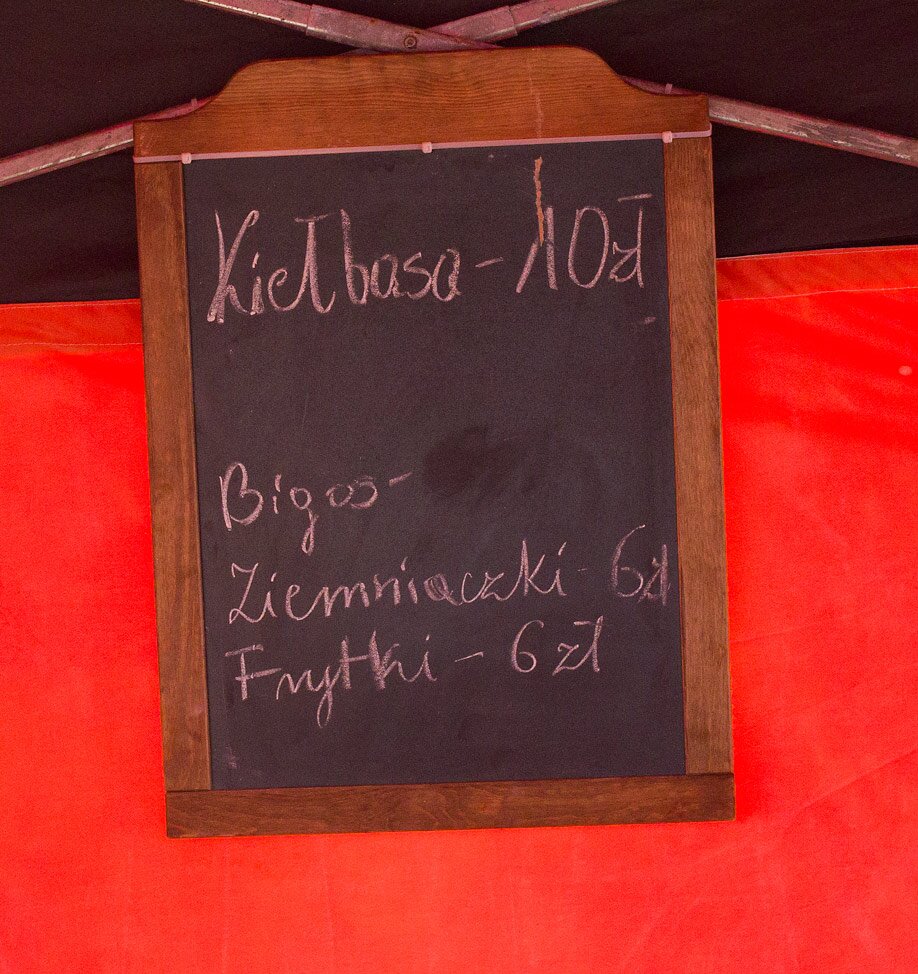 Kiełbasa - 10 zł
Bigos -
Ziemniaczki - 6 zł
Frytki - 6 zł